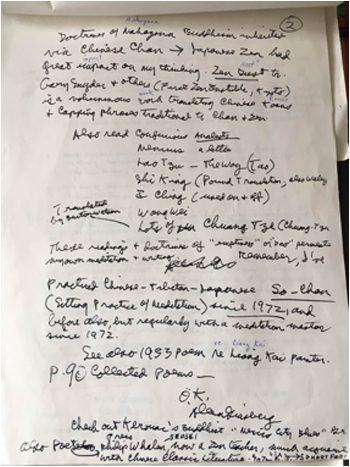 Mahayana
(2)
Doctrines of Mahayana Buddhism inherited
via Chinese Chan → Japanese Zen had
great impact on my thinking. Zen Dust by
Gary Snyder & others (First Zen Institute, Kyoto)
is a voluminous work translating Chinese Koans
& Capping phrases traditional to Chan & Zen
Also read Confucius Analects
Mencius a little
Lao Tzu - The Way (Tao)
Shi King (Pound Translation, also Waley
I Ching (used on & off)
Wang Wei
Translated by Burton Watson
Lots of Chuang Tzu (Chuang-Tze
These readings & doctrines of "emptiness" or "Tao" permeate
my own meditation & writing. Remember, I've
Practiced Chinese-Tibetan-Japanese So-Chan
(Sitting Practice of Meditation) since 1972, and
before also, but regularly with a meditation master
since 1972.
re Liang Kai
See also 1953 poem re Liang Kai painter.
P. 90 Collected Poems —
O.K.
Allen Ginsberg
Check out Kerouac's Buddhist "Mexico City Blues"
also Poet Philip Whalen, now a Zen teacher, much acquainted
SENSEI
with Chinese Classic literature.